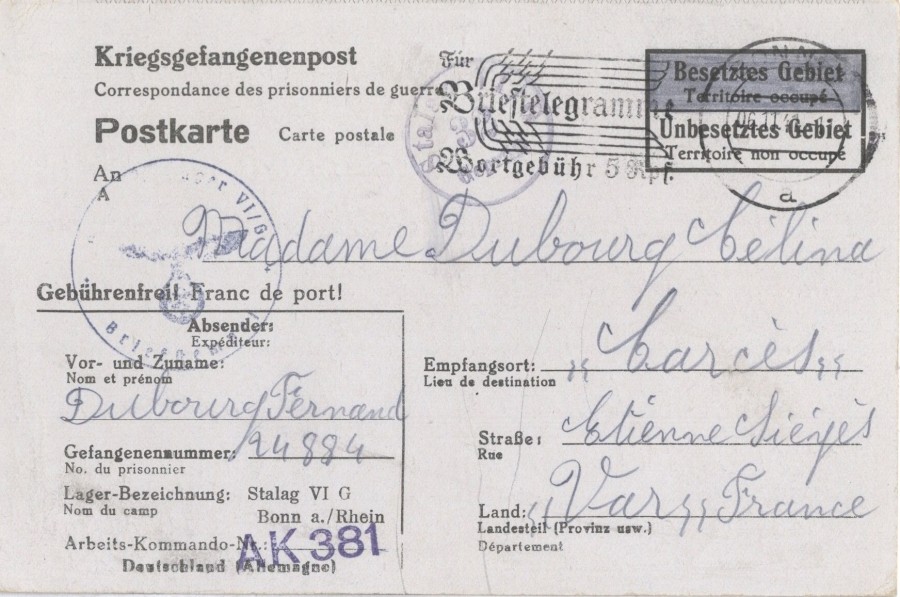 Kriegsgefangenenpost
Correspondance des prisonniers de guerre
Postkarte Carte postale
Für
Brieftelegramme
Wortgebühr 5 Rpf.
Besetztes Gebiet
Territoire occupé
Unbesetztes Gebiet
Territoire non occupé
a
An
A
Madame Dubourg Célina
Gebührenfrei! Franc de port!
Absender:
Expéditeur:
Vor- und Zuname:
Nom et prénom
Dubourg Fernand
Gefangenennummer: 24884
No. du prisonnier
Lager-Bezeichnung: Stalag VI G
Nom du camp
Bonn a./Rhein
Arbeits-Kommando-Nr.: AK 381
Deutschland (Allemagne)
Empfangsort: "Carcès"
Lieu de destination
Straße: Etienne Sièyès
Rue
Land: "Var" France
Landesteil (Provinz usw.)
Département